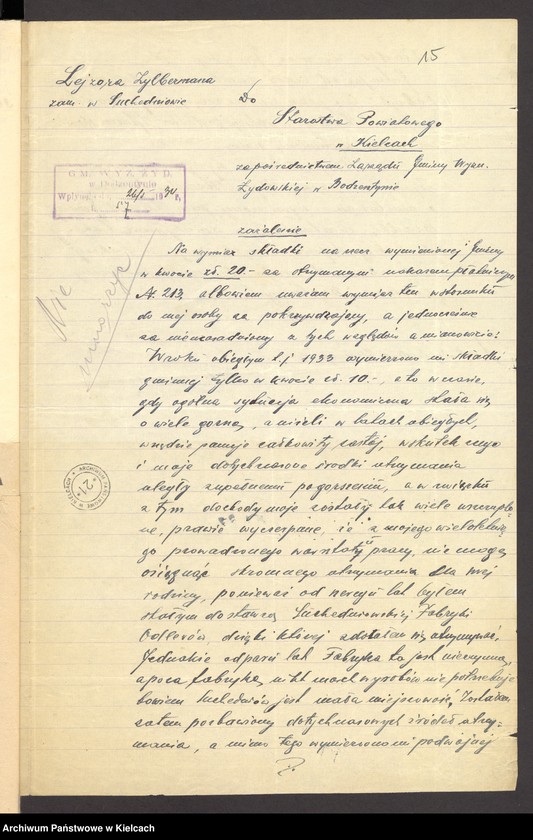 15
Lejzora Zylbermana
zam. w Suchedniowie
Do
Starostwa Powiatowego
w Kielcach
za pośrednictwem Zarządu Gminy Wyzn.
Żydowskiej w Bodzentynie
GM. WYZ. ŻYD.
w Bodzentynie
Wpłynęło 193 4 r.
57
zażalenie
Nie
Na wymiar składki na rzecz wymienionej Gminy
w kwocie zł. 20.- za otrzymanym nakazem płatniczym
Nr. 213, albowiem uważam wymiar ten w stosunku
do mej osoby za pokrzywdzający, a jednocześnie
za nieuzasadniony z tych względów a mianowicie:
W roku ubiegłym t.j. 1933 wymierzono mi składki
gminnej tylko w kwocie zł. 10.-, a to w czasie,
gdy ogólna sytuacja ekonomiczna stała się
o wiele gorszą, aniżeli w latach ubiegłych,
wszędzie panuje całkowity zastój, wskutek czego
i moje dotychczasowe środki utrzymania
uległy zupełnemu pogorszeniu, a w związku
z tym dochody moje zostały tak wiele uszczuplo-
ne, prawie wyczerpane, iż z mojego wieloletnie-
go prowadzonego warsztatu pracy, nie mogę
osiągnąć skromnego utrzymania dla mej
rodziny, ponieważ od szeregu lat byłem
stałym dostawcą Suchedniowskiej Fabryki
Odlewów, dzięki której zdołałem się utrzymywać.
Jednakże od paru lat Fabryka ta jest nieczynną,
a poza fabryką, nikt moich wyrobów nie potrzebuje
bowiem Suchedniów jest małą miejscowość. Zostałem
zatem pozbawiony dotychczasowych źródeł utrzy-
mania, a mimo tego wymierzono mi podwójnej
ARCHIWUM PAŃSTWOWE W KIELCACH
21
Archiwum Państwowe w Kielcach